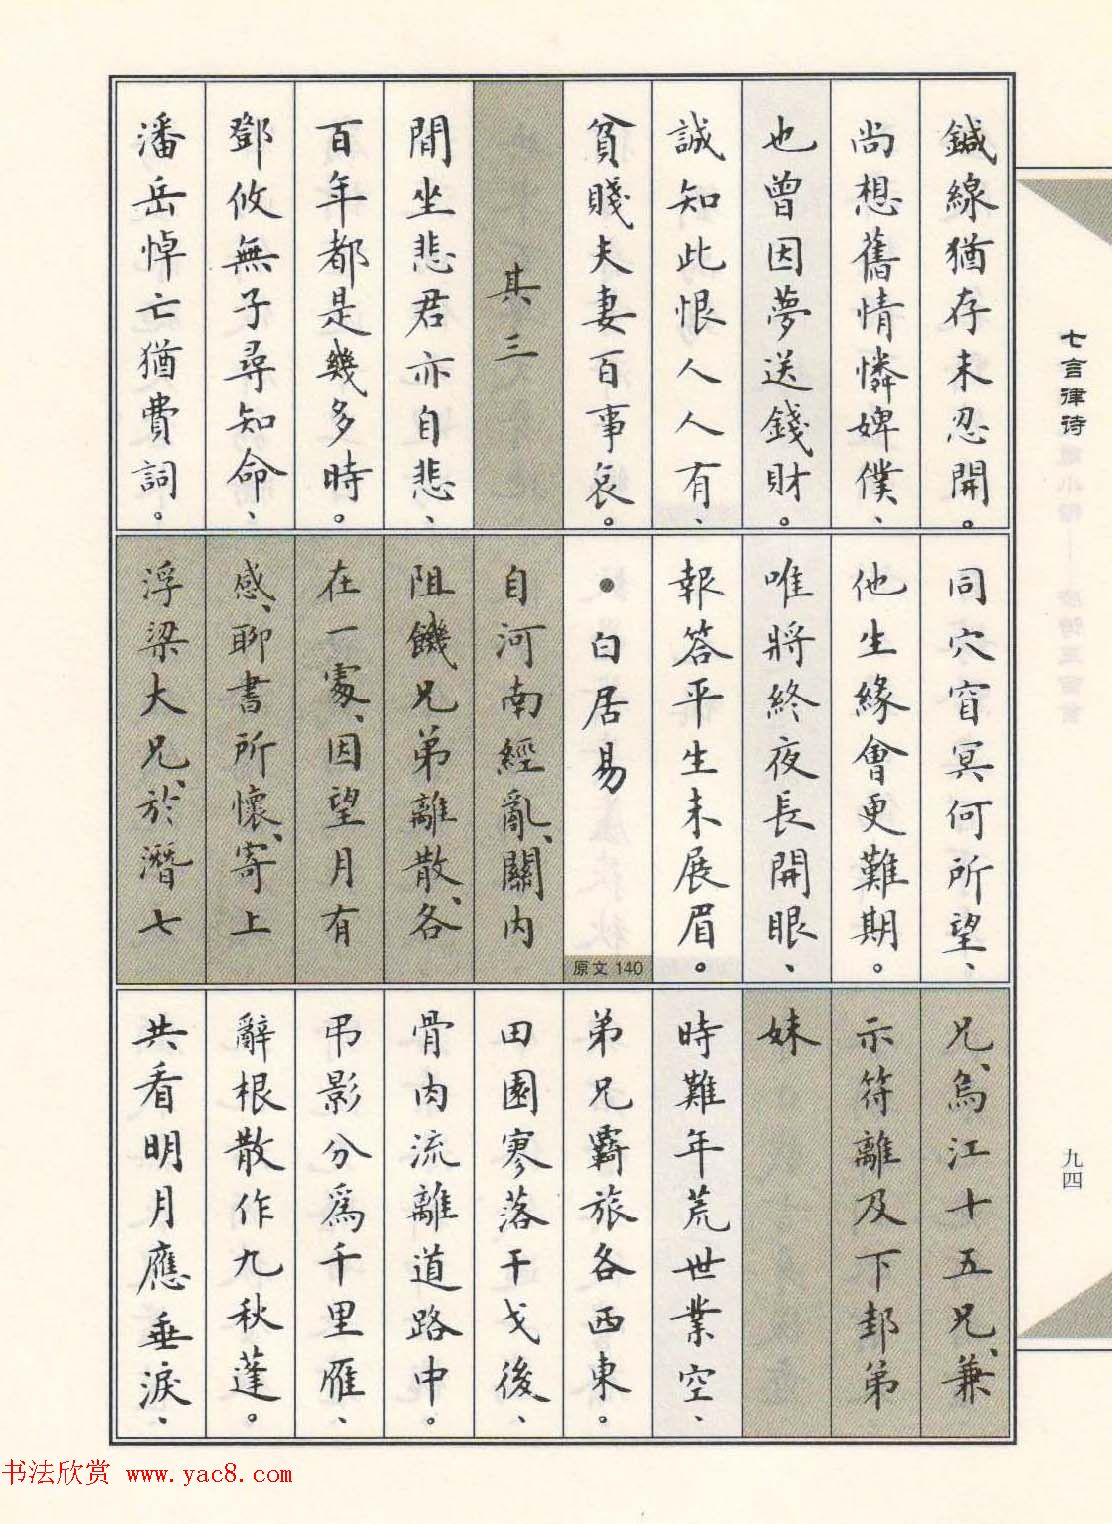 鍼線猶存未忍開。
尚想舊情憐婢僕、
也曾因夢送錢財。
誠知此恨人人有、
貧賤夫妻百事哀。
其三
閒坐悲君亦自悲、
百年都是幾多時。
鄧攸無子尋知命、
潘岳悼亡猶費詞。
同穴窅冥何所望、
他生緣會更難期。
唯將終夜長開眼、
報答平生未展眉。
●白居易
原文 140
自河南經亂、關内
阻饑兄弟離散、各
在一處、因望月有
感、聊書所懷、寄上
浮梁大兄、於潛七
兄、烏江十五兄、兼
示符離及下邽弟
妹
時難年荒世業空、
弟兄羇旅各西東。
田園寥落干戈後、
骨肉流離道路中。
弔影分爲千里雁、
辭根散作九秋蓬。
共看明月應垂淚、
七言律诗
九四
书法欣赏 www.yac8.com